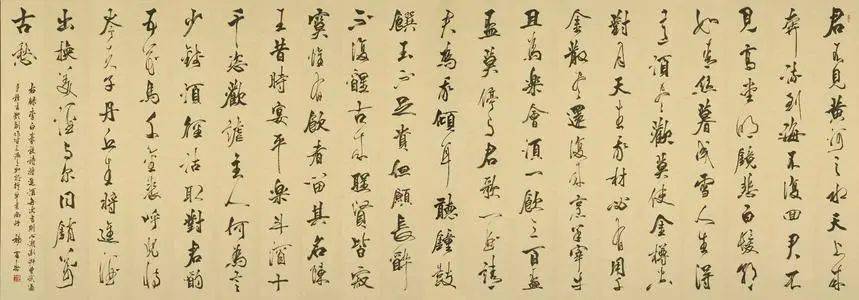 君不見黃河之水天上來
奔流到海不復回君不
見高堂明鏡悲白髮朝
如青絲暮成雪人生得
意須盡歡莫使金樽空
對月天生我材必有用千
金散盡還復來烹羊宰牛
且為樂會須一飲三百盃
盃莫停與君歌一曲請
君為我傾耳聽鐘鼓
饌玉不足貴但願長醉
不復醒古來聖賢皆寂
寞惟有飲者留其名陳
王昔時宴平樂斗酒十
千恣歡謔主人何為言
少錢須徑沽取對君酌
五花馬千金裘呼兒將
岑夫子丹丘生將進酒
出換美酒與爾同銷萬
古愁
右錄李白樂府詩將進酒